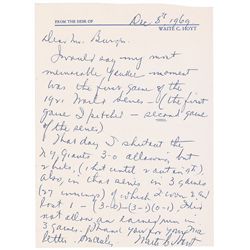 FROM THE DESK OF
WAITE C. HOYT
Dec 8th 1969
Dear Mr. Burgh.
I would say my most
memorable Yankee moment
was the first game of the
1921 World Series - (the first
game I pitched - second game
of the series)
That day I shutout the
N.Y. Giants 3-0 allowing but
2 hits, (1 hit until
also, in that series in 3 games
(27 innings) of which I won 2 &
lost 1 - (3-0) - (3-1) (0-1), I did
not allow an earned run in
3 games. Thank you for your nice
letter. Sincerely
Waite C Hoyt